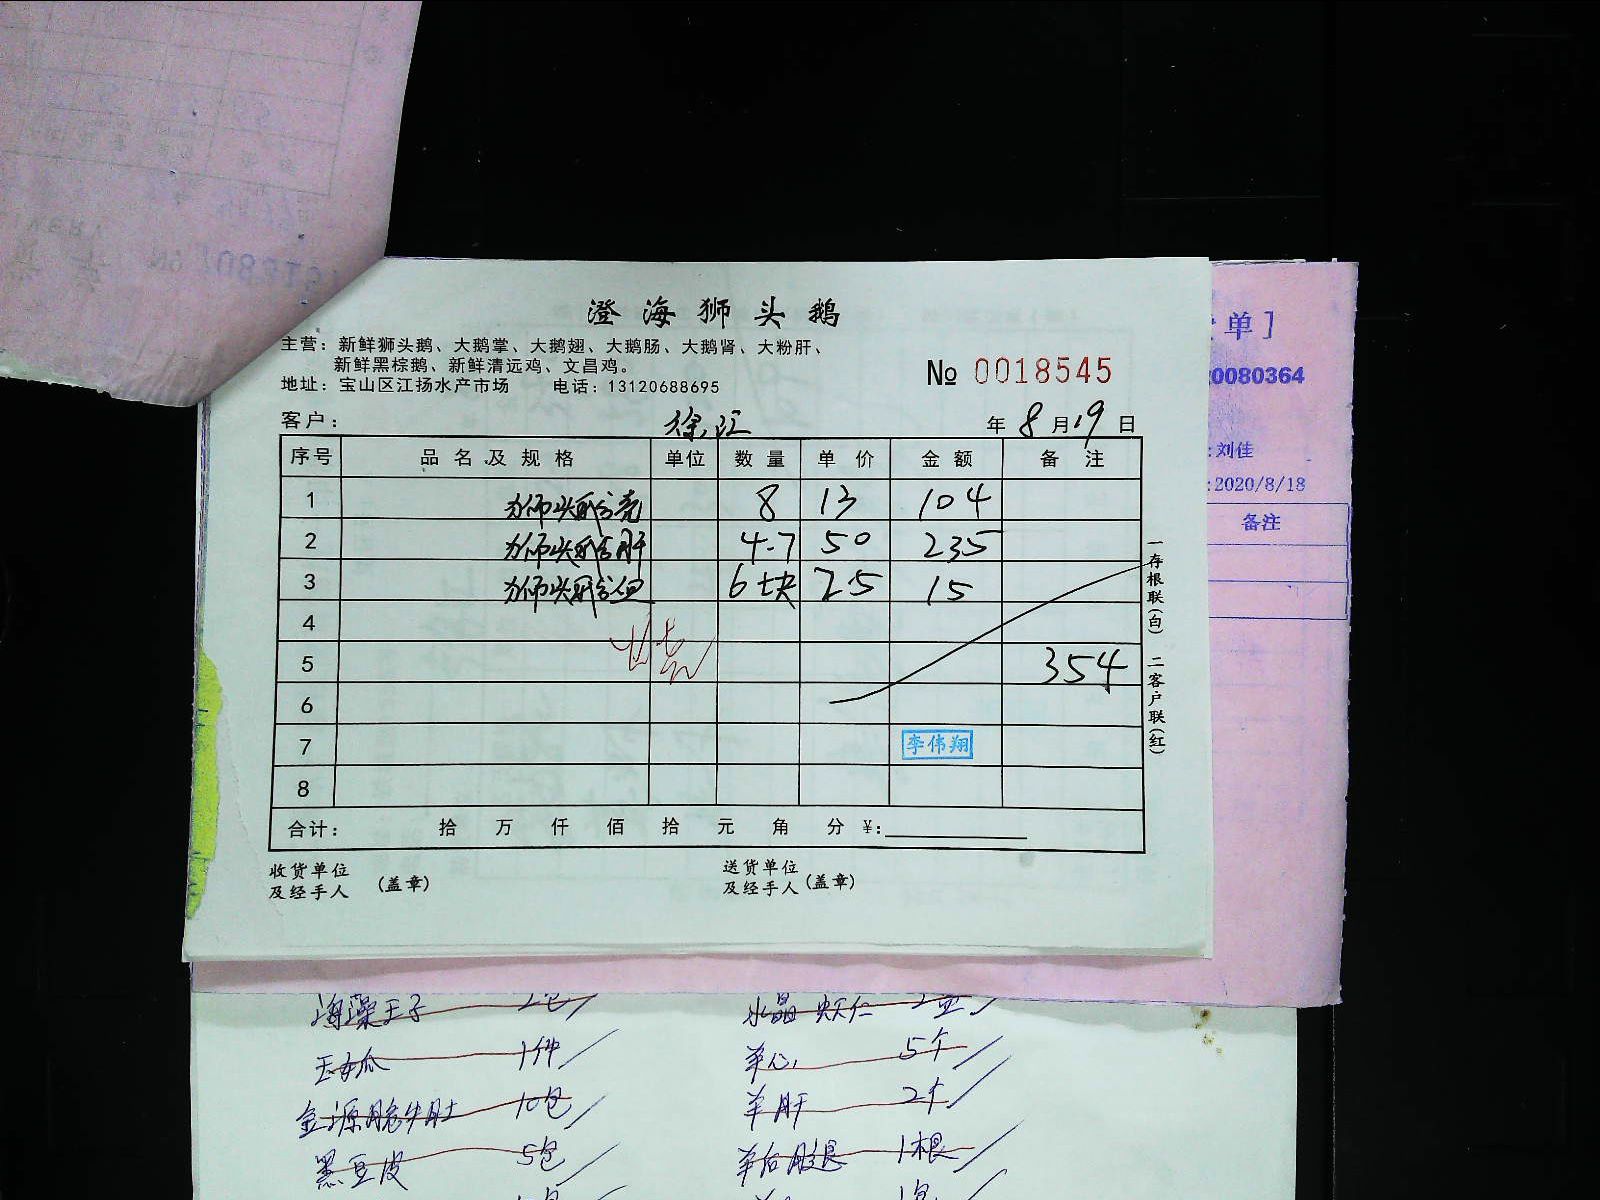 澄海狮头鹅
主营：新鲜狮头鹅、大鹅掌、大鹅翅、大鹅肠、大鹅肾、大粉肝、
新鲜黑棕鹅、新鲜清远鸡、文昌鸡。
№ 0018545
地址：宝山区江扬水产市场 电话：13120688695
客户： 徐汇 年 8 月 19 日
序号 品名及规格 单位 数量 单价 金额 备注
1 狮头鹅壳 8 13 104
2 狮头鹅肝 4.7 50 235
3 狮头鹅血 6块 2.5 15
4
5 354
6
7 李伟翔
8
合计： 拾 万 仟 佰 拾 元 角 分 ¥：
收货单位
及经手人 (盖章)
送货单位
及经手人 (盖章)
一存根联(白) 二客户联(红)
单]
0080364
:刘佳
:2020/8/18
备注
海藻王子 2包
玉女瓜 1件
金源脆牛肚 10包
黑豆皮 5包
水晶 2盒
羊心 5个
羊肝 2个
羊后腿 1根
1包